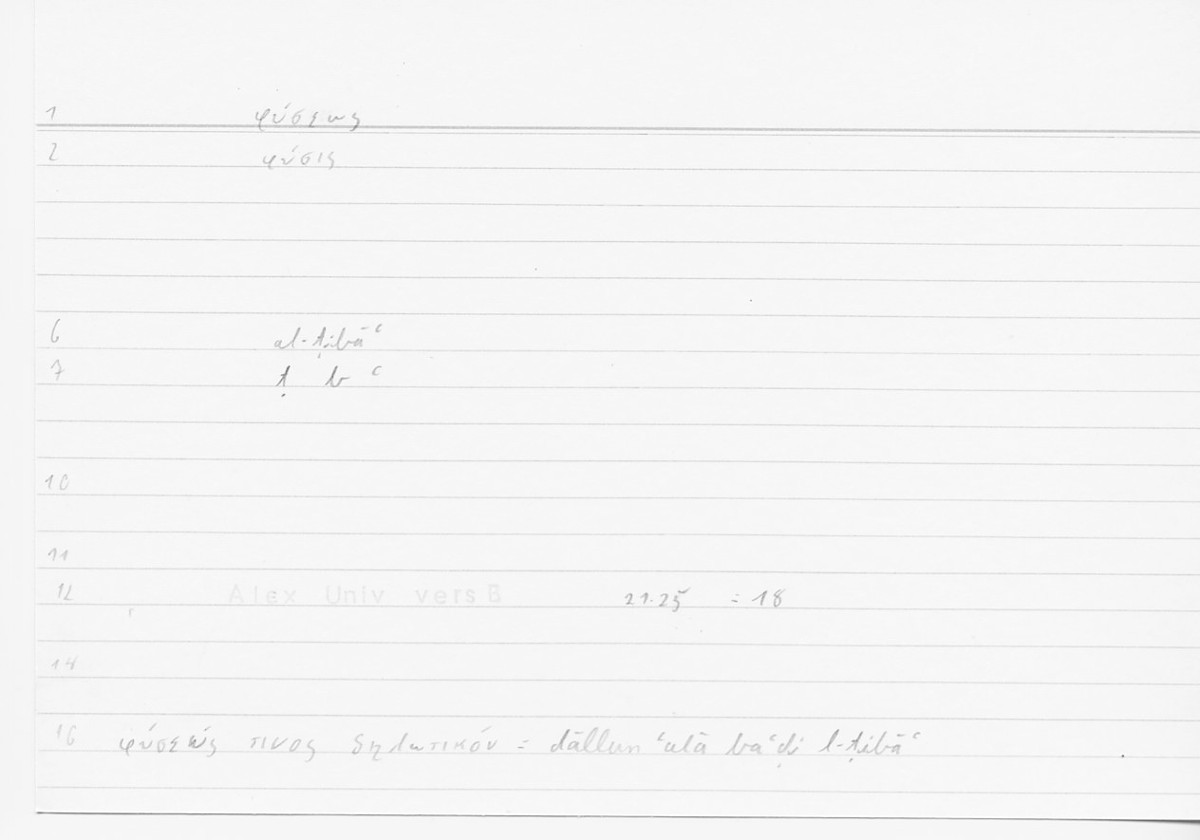 1 φύσεως
2 φύσις
6 al-ṭibāʿ
7 ṭ b ʿ
10
11
12 Alex Univ vers B 21.25 = 18
14
16 φύσεώς τινος δηλωτικόν = dāllun ʿalā baʿḍi l-ṭibāʿ